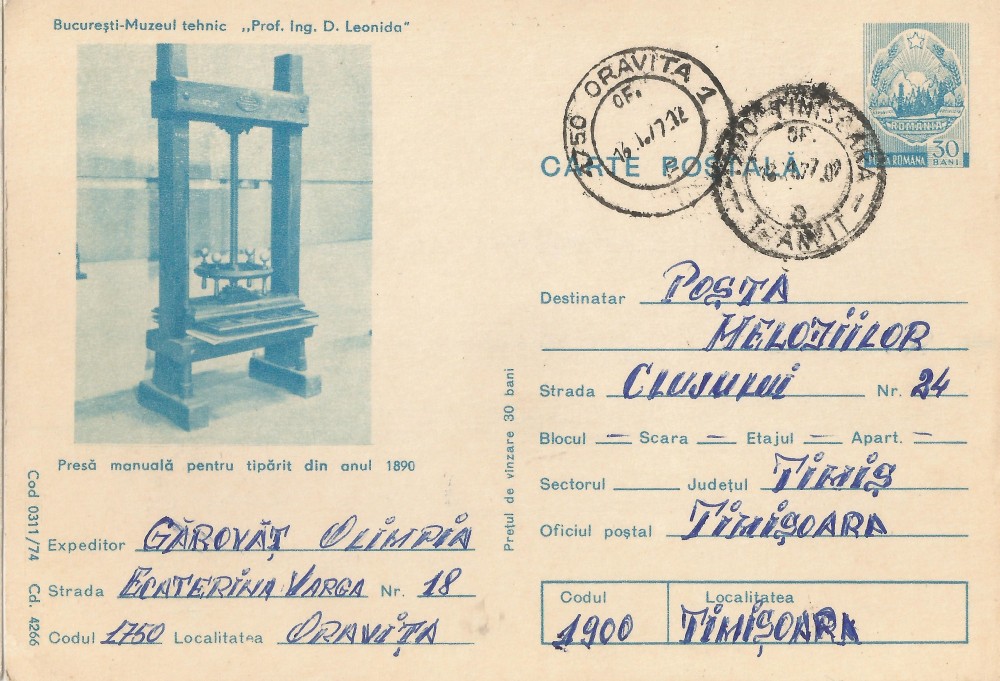 București-Muzeul tehnic ,,Prof. Ing. D. Leonida"
ROMANIA
POSTA ROMÂNA 30 BANI
1750 ORAVITA 1
OF.
TIMISOARA
OF.
TRANZIT
CARTE POȘTALĂ
Destinatar POȘTA
MELODIILOR
Strada CLUJULUI Nr. 24
Blocul — Scara — Etajul — Apart. —
Sectorul Județul TIMIȘ
Oficiul poștal TIMIȘOARA
Codul Localitatea
1900 TIMIȘOARA
Prețul de vînzare 30 bani
Presă manuală pentru tipărit din anul 1890
Expeditor GĂROVĂȚ OLIMPIA
Strada ECATERINA VARGA Nr. 18
Codul 1750 Localitatea ORAVIȚA
Cod 0311/74 Cd. 4266